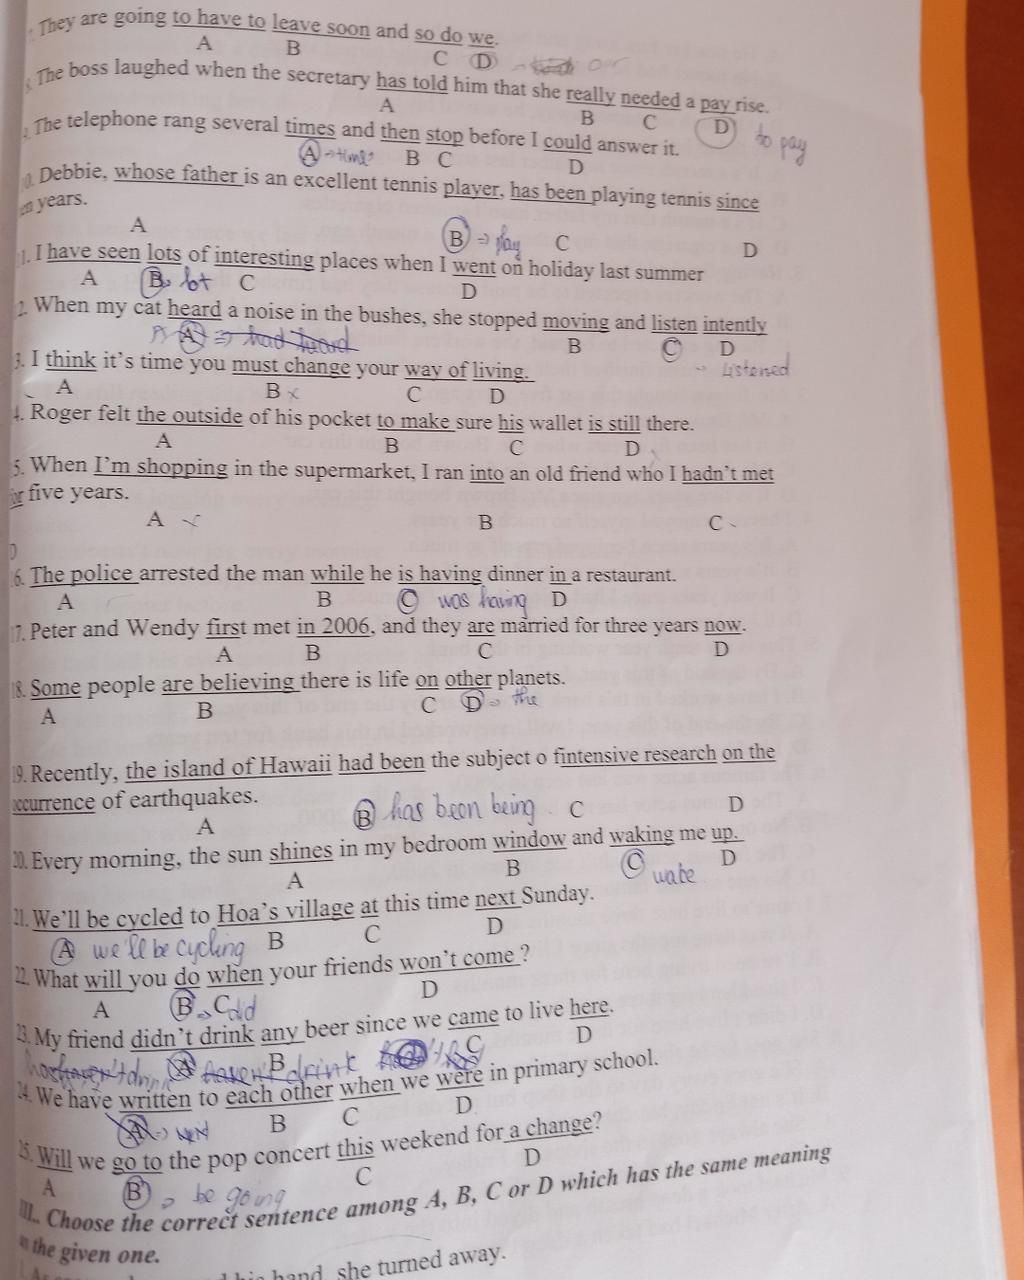 They are going to have to leave soon and so do we.
A B C D our
The boss laughed when the secretary has told him that she really needed a pay rise.
A B C D to pay
The telephone rang several times and then stop before I could answer it.
A B C D
Debbie, whose father is an excellent tennis player, has been playing tennis since
years.
A B play C D
1. I have seen lots of interesting places when I went on holiday last summer
A B lot C D
2. When my cat heard a noise in the bushes, she stopped moving and listen intently
A had heard B C D
listened
3. I think it's time you must change your way of living.
A B x C D
4. Roger felt the outside of his pocket to make sure his wallet is still there.
A B C D
5. When I'm shopping in the supermarket, I ran into an old friend who I hadn't met
for five years.
A x B C
6. The police arrested the man while he is having dinner in a restaurant.
A B C was having D
17. Peter and Wendy first met in 2006, and they are married for three years now.
A B C D
18. Some people are believing there is life on other planets.
A B C D the
19. Recently, the island of Hawaii had been the subject o fintensive research on the
occurrence of earthquakes.
A B has been being C D
20. Every morning, the sun shines in my bedroom window and waking me up.
A B C wake D
21. We'll be cycled to Hoa's village at this time next Sunday.
A we'll be cycling B C D
22. What will you do when your friends won't come ?
A B C did D
23. My friend didn't drink any beer since we came to live here.
A haven't drink B C D
24. We have written to each other when we were in primary school.
A B C D
25. Will we go to the pop concert this weekend for a change?
A B be going C D
III.. Choose the correct sentence among A, B, C or D which has the same meaning
as the given one.
hand, she turned away.